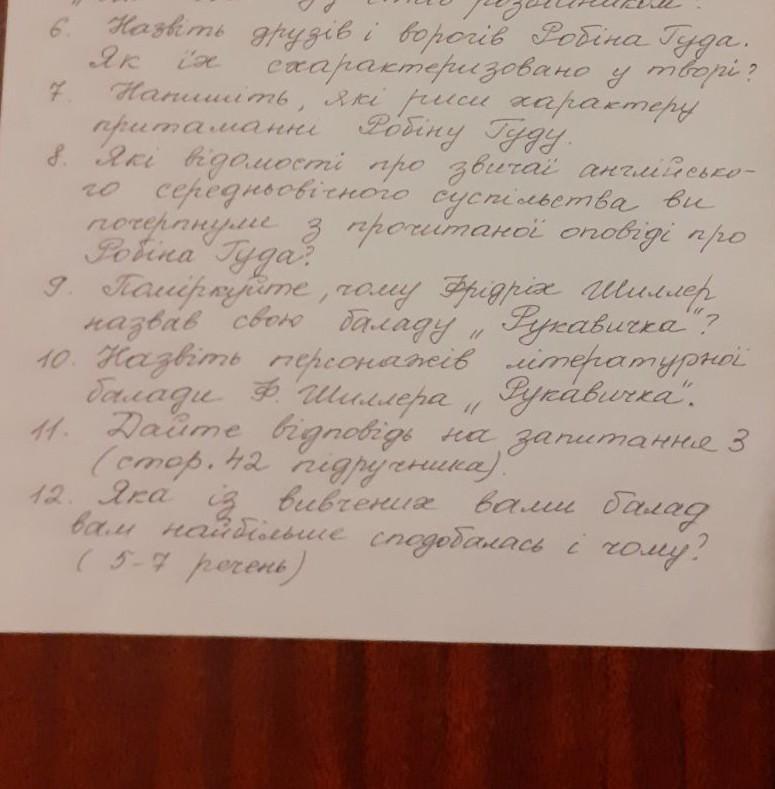 розбійником".
6. Назвіть друзів і ворогів Робіна Гуда.
Як їх схарактеризовано у творі?
7. Напишіть, які риси характеру
притаманні Робіну Гуду.
8. Які відомості про звичаї англійсько-
го середньовічного суспільства ви
почерпнули з прочитаної оповіді про
Робіна Гуда?
9. Поміркуйте, чому Фрідріх Шиллер
назвав свою баладу „Рукавичка"?
10. Назвіть персонажів літературної
балади Ф. Шиллера „Рукавичка".
11. Дайте відповідь на запитання 3
(стор. 42 підручника).
12. Яка із вивчених вами балад
вам найбільше сподобалась і чому?
(5-7 речень)